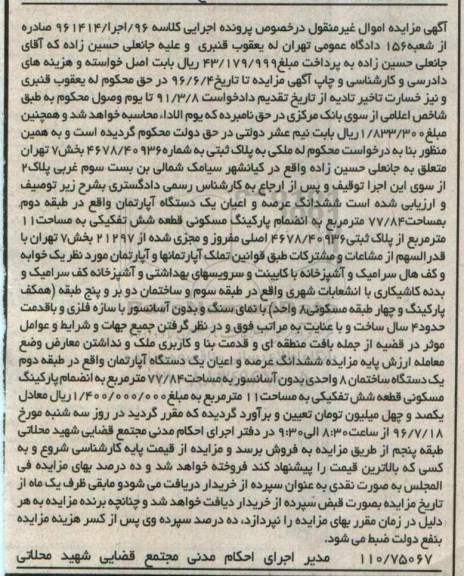 آگهی مزایده اموال غیرمنقول درخصوص پرونده اجرایی کلاسه ۹۶/اجرا/۹۶۱۴۱۴ صادره
از شعبه۱۵۶ دادگاه عمومی تهران له یعقوب قنبری و علیه جانعلی حسین زاده که آقای
جانعلی حسین زاده به پرداخت مبلغ۴۳/۱۷۹/۹۹۹ ریال بابت اصل خواسته و هزینه های
دادرسی و کارشناسی و چاپ آگهی مزایده تا تاریخ۹۶/۶/۴ در حق محکوم له یعقوب قنبری
و نیز خسارت تاخیر تادیه از تاریخ تقدیم دادخواست ۹۱/۳/۸ تا یوم وصول محکوم به طبق
شاخص اعلامی از سوی بانک مرکزی در حق نامبرده که یوم الاداء، محاسبه خواهد شد و همچنین
مبلغ۱/۸۳۳/۳۰۰ ریال بابت نیم عشر دولتی در حق دولت محکوم گردیده است و به همین
منظور بنا به درخواست محکوم له ملکی به پلاک ثبتی به شماره۴۶۷۸/۴۰۹۳۶ بخش۷ تهران
متعلق به جانعلی حسین زاده واقع در کیانشهر سیامک شمالی بن بست سوم غربی پلاک۲
از سوی این اجرا توقیف و پس از ارجاع به کارشناس رسمی دادگستری بشرح زیر توصیف
و ارزیابی شده است ششدانگ عرصه و اعیان یک دستگاه آپارتمان واقع در طبقه دوم
بمساحت۷۷/۸۴ مترمربع به انضمام پارکینگ مسکونی قطعه شش تفکیکی به مساحت۱۱
مترمربع از پلاک ثبتی۴۶۷۸/۴۰۹۳۶ اصلی مفروز و مجزی شده از ۲۱۲۹۷ بخش۷ تهران با
قدرالسهم از مشاعات و مشترکات طبق قوانین تملک آپارتمانها و آپارتمان مورد نظر یک خوابه
و کف هال سرامیک و آشپزخانه با کابینت و سرویسهای بهداشتی و آشپزخانه کف سرامیک و
بدنه کاشیکاری با انشعابات شهری واقع در طبقه سوم و ساختمان دو بر و پنج طبقه (همکف
پارکینگ و چهار طبقه مسکونی۸ واحد) با نمای سنگ و بدون آسانسور با سازه فلزی و باقدمت
حدود۴ سال ساخت و با عنایت به مراتب فوق و در نظر گرفتن جمیع جهات و شرایط و عوامل
موثر در قضیه از جمله بافت منطقه ای و قدمت بنا و کاربری ملک و نداشتن معارض وضع
معامله ارزش پایه مزایده ششدانگ عرصه و اعیان یک دستگاه آپارتمان واقع در طبقه دوم
یک دستگاه ساختمان ۸ واحدی بدون آسانسور به مساحت۷۷/۸۴ مترمربع به انضمام پارکینگ
مسکونی قطعه شش تفکیکی به مساحت۱۱ مترمربع به مبلغ۱/۴۰۰/۰۰۰/۰۰۰ ریال معادل
یکصد و چهل میلیون تومان تعیین و برآورد گردیده که مقرر گردید در روز سه شنبه مورخ
۹۶/۷/۱۸ از ساعت۸:۳۰ الی۹:۳۰ در دفتر اجرای احکام مدنی مجتمع قضایی شهید محلاتی
طبقه پنجم از طریق مزایده به فروش برسد و مزایده از قیمت پایه کارشناسی شروع و به
کسی که بالاترین قیمت را پیشنهاد کند فروخته خواهد شد و ده درصد بهای مزایده فی
المجلس به صورت نقدی به عنوان سپرده از خریدار دریافت می شودو مابقی ظرف یک ماه از
تاریخ مزایده بصورت قبض سپرده از خریدار دیافت خواهد شد و چنانچه برنده مزایده به هر
دلیل در زمان مقرر بهای مزایده را نپردازد، ده درصد سپرده وی پس از کسر هزینه مزایده
بنفع دولت ضبط می شود.
۱۱۰/۷۵۰۶۷ مدیر اجرای احکام مدنی مجتمع قضایی شهید محلاتی